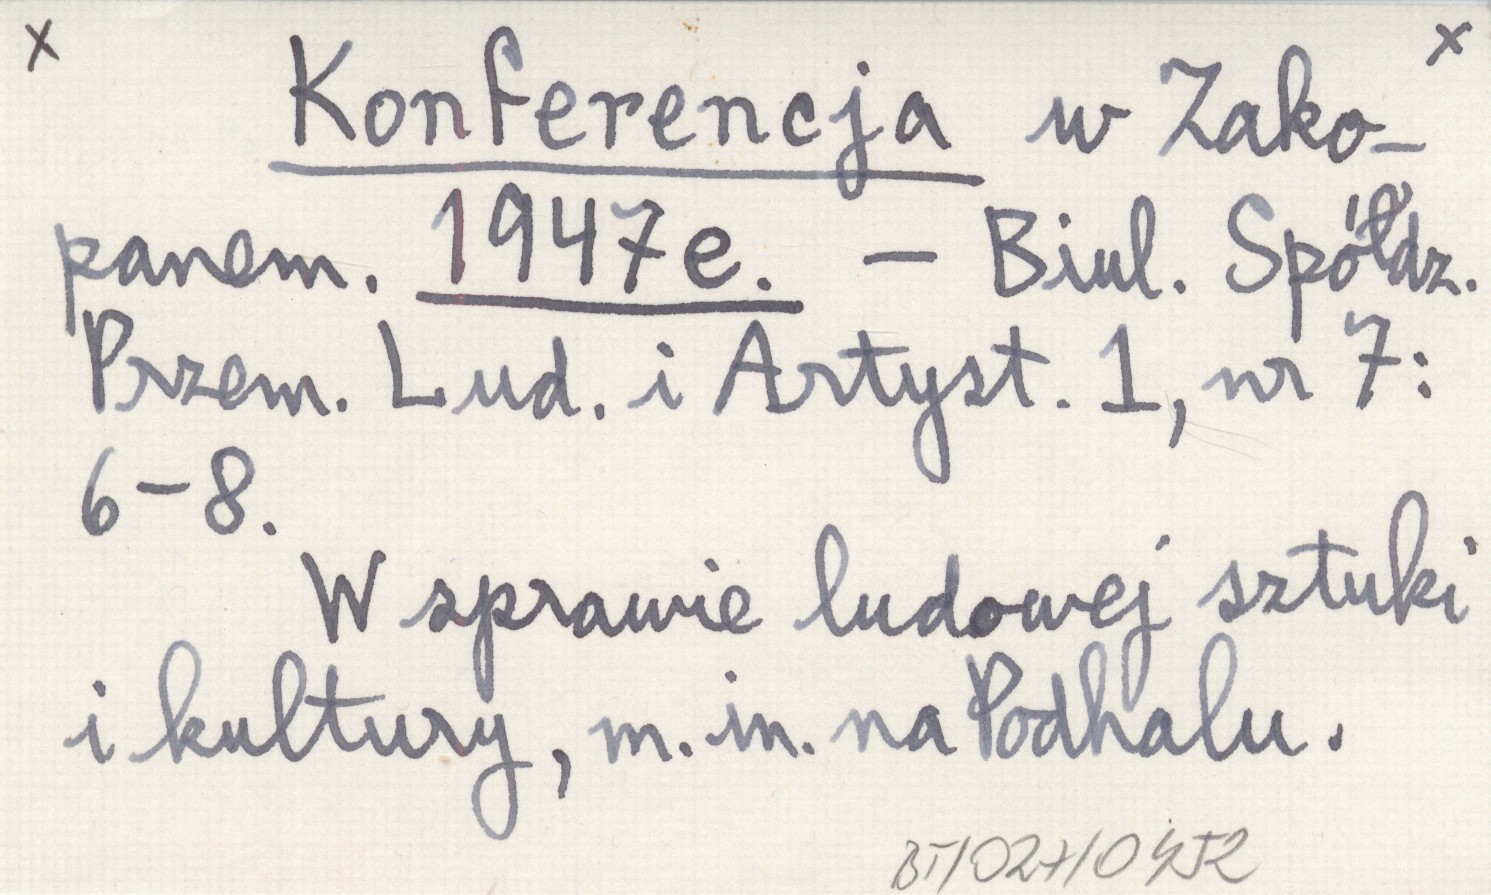 x x
Konferencja w Zako-
panem. 1947e. – Biul. Spółdz.
Przem. Lud. i Artyst. 1, nr 7:
6-8.
W sprawie ludowej sztuki
i kultury, m. in. na Podhalu.